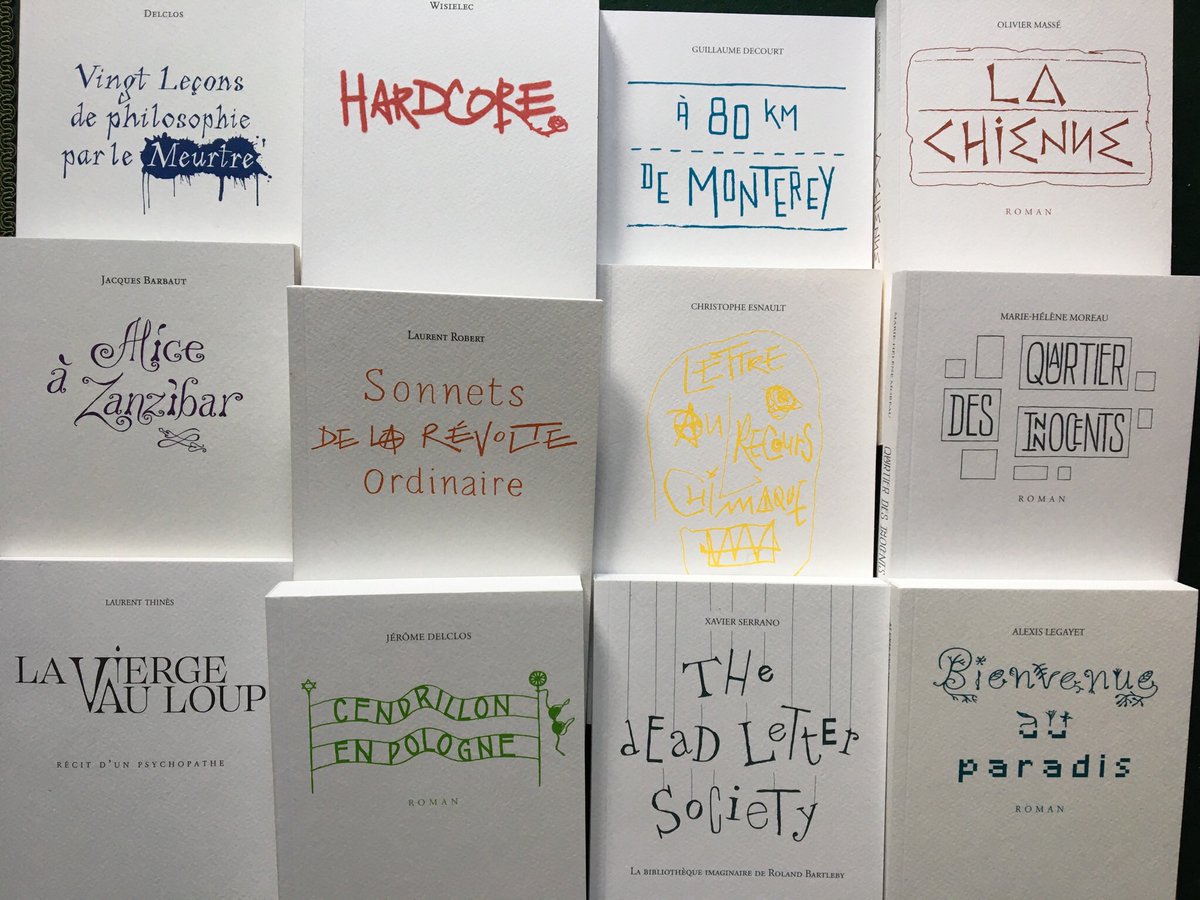 DELCLOS
Vingt Leçons
de philosophie
par le Meurtre
WISIELEC
HARDCORE
GUILLAUME DECOURT
À 80 KM
DE MONTEREY
OLIVIER MASSÉ
LA
CHIENNE
ROMAN
JACQUES BARBAUT
Alice
à Zanzibar
LAURENT ROBERT
Sonnets
DE LA RÉVOLTE
Ordinaire
CHRISTOPHE ESNAULT
LETTRE
AU RECOURS
CHIMIQUE
MARIE-HÉLÈNE MOREAU
QUARTIER
DES
INNOCENTS
ROMAN
MARIE-HÉLÈNE MOREAU
QUARTIER DES INNOCENTS
LAURENT THINÈS
LA VIERGE
AU LOUP
RÉCIT D'UN PSYCHOPATHE
JÉRÔME DELCLOS
CENDRILLON
EN POLOGNE
ROMAN
XAVIER SERRANO
THe
dEAD LeTtEr
SOcIeTy
LA BIBLIOTHÈQUE IMAGINAIRE DE ROLAND BARTLEBY
ALEXIS LEGAYET
Bienvenue
au
paradis
ROMAN